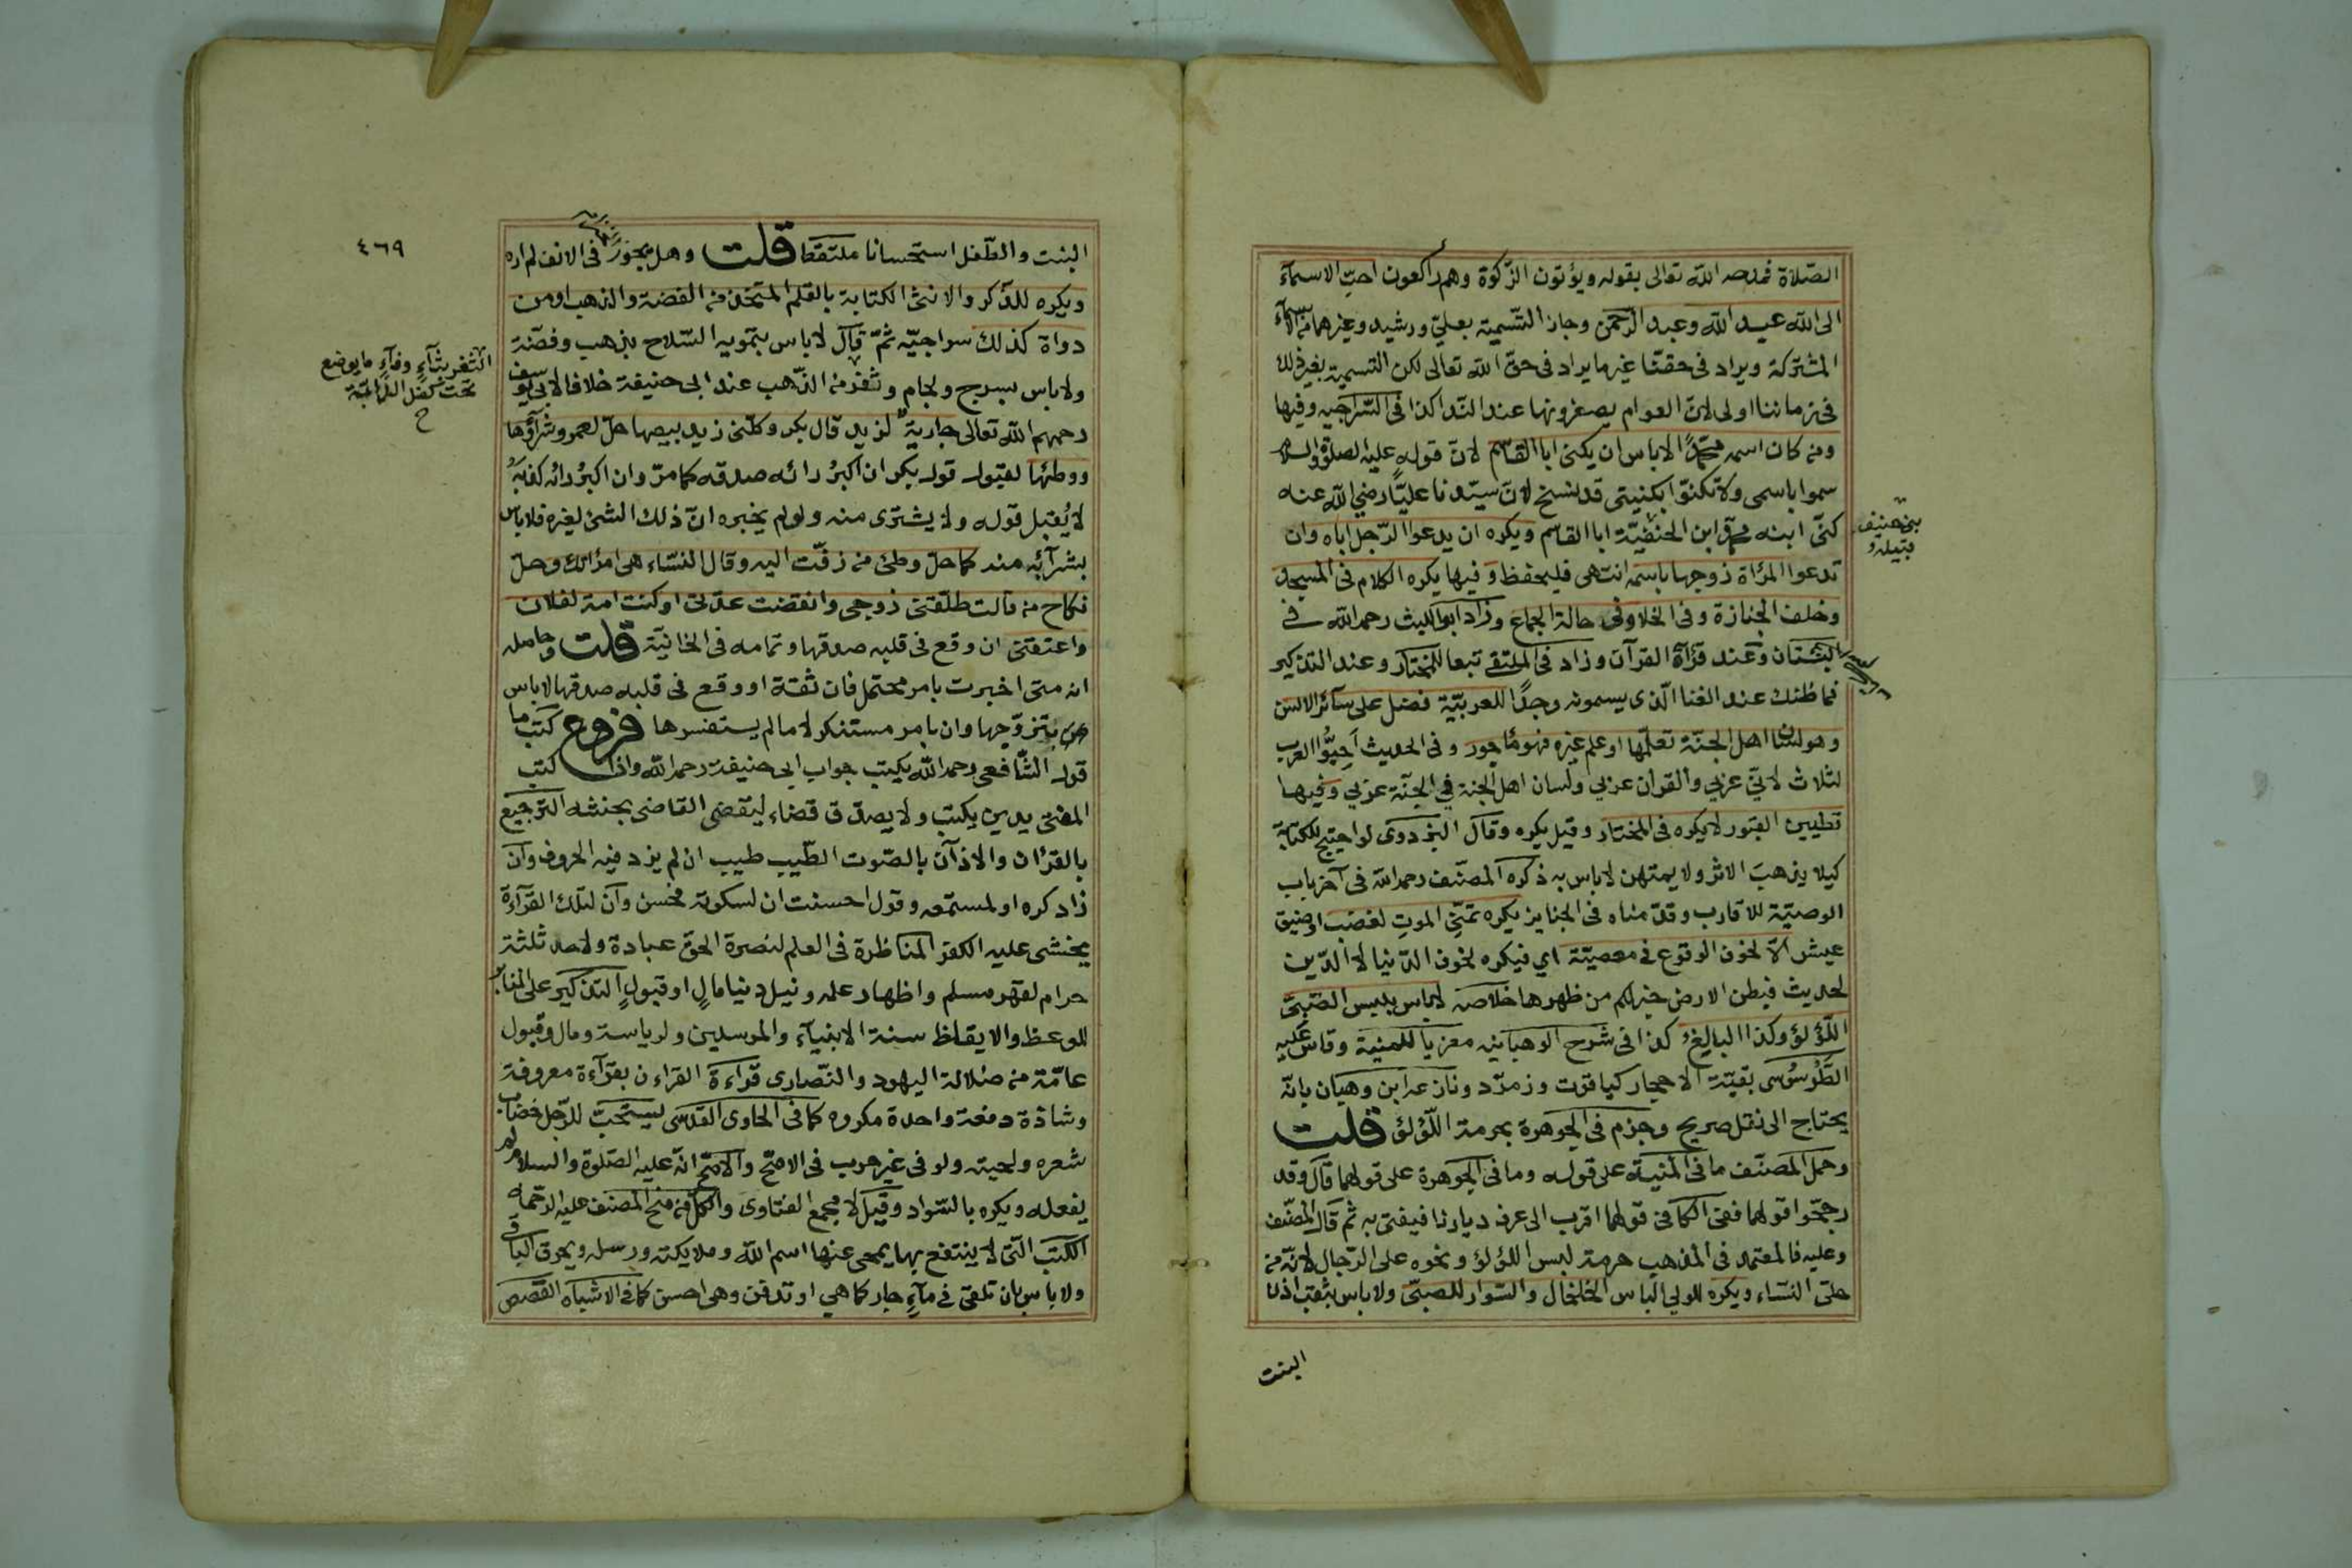 الصّلاة فمدحه الله تعالى بقوله ويؤتون الزّكوة وهم راكعون احبّ الاسمآء
الى الله عبد الله وعبد الرّحمن وجاز التّسمية بعليّ ورشيد وغيرهما من الاسمآء
المشتركة ويراد فى حقنا غير ما يراد فى حقّ الله تعالى لكن التسمية بغير ذلك
فى زماننا اولى لانّ العوام يصغرونها عند النّدا كذا فى السّراجيه وفيها
ومن كان اسمه محمّدًا لاباس ان يكنى ابا القاسم لانّ قوله عليه الصلوة والسلام
سموا باسمى ولا تكنوّا بكنيتى قد نسخ لانّ سيّدنا عليًّا رضي الله عنه
كنّى ابنه محمّد ابن الحنفيّة ابا القاسم ويكره ان يدعوا الرّجل اباه وان
بنى حنيف
قبيلة
تدعوا المرأة زوجها باسمه انتهى فليحفظ وفيها يكره الكلام فى المسجد
وخلف الجنازة وفى الخلا وفى حالة الجماع وزاد ابو الليث رحمه الله فى
البستان وعند قرآة القرآن وزاد فى الملتقى تبعا للمختار وعند التذكير
فما ظنك عند الغنا الّذى يسمونه وجدًا للعربيّة فضل على سآئر الالسن
وهو لسان اهل الجنّة تعلّمها او علم غيره فهو مأجور وفى الحديث احبّوا العرب
لثلاث لانّي عربي والقرآن عربي ولسان اهل الجنة في الجنّة عربي وفيها
تطيين القبور لا يكره فى المختار وقيل يكره وقال البزدوى لو احتيج للكتابة
كيلا يذهب الاثر ولا يمتهن لاباس به ذكره المصنّف رحمه الله فى آخر باب
الوصيّة للاقارب وقدّمناه فى الجنايز يكره تمنّي الموت لغضب او ضيق
عيش الاّ لخوف الوقوع فى معصيّة اي فيكره لخوف الدّنيا لا الدّين
لحديث فبطن الارض خير لكم من ظهرها خلاصه لاباس بلبس الصّبىّ
اللّؤلؤ وكذا البالغ كذا فى شرح الوهبانيه معزيا للمنية وقاس عليه
الطّرسُوسى بقيّة الاحجار كياقوت وزمرّد ونازعه ابن وهبان بانّه
يحتاج الى نقل صريح وجزم فى الجوهرة بحرمة اللّؤلؤ قلت
وحمل المصنّف ما فى المنية على قوله وما فى الجوهرة على قولهما قال وقد
رجحّوا قولهما ففى الكافى قولهما اقرب الى عرف ديارنا فيفتى به ثمّ قال المصنّف
وعليه فالمعتمد فى المذهب حرمة لبس اللؤلؤ ونحوه على الرّجال لانّه من
حلىّ النسّاء ويكره للولي الباس الخلخال والسّوار للصبىّ ولاباس بثقب اذن
البنت
٤٦٩
البنت والطّفل استحسانا ملتقطا قلت وهل يجوز فى الانف لم اره
ويكره للذّكر والانثى الكتابة بالقلم المتّخذ من الفضة والذهب او من
دواة كذلك سراجيّه ثمّ قال لاباس بتمويه السّلاح بذهب وفضّة
الثّغر بثآءٍ وفآءٍ ما يوضع
تحت كفل الدّابّة
ح
ولاباس بسرج ولجام وثغر من الذّهب عند ابى حنيفة خلافا لابى يوسف
رحمهم الله تعالى جارية لزيد قال بكر وكلّنى زيد ببيعها حلّ لعمرو شرآؤها
ووطئها لقبول قول بكر ان اكبر رائه صدقه كما مرّ وان اكبر رائه كذبه
لا يُقبل قوله ولا يشترى منه ولو لم يخبره انّ ذلك الشئ لغيره فلاباس
بشرآئه منه كما حلّ وطئ من زفّت اليه وقال النسّاء هى امرأتك وحلّ
نكاح من قالت طلّقنى زوجى وانقضت عدّتى او كنت امة لفلان
واعتقنى ان وقع فى قلبه صدقها وتمامه فى الخانيّة قلت وحاصله
انه متى اخبرت بامر محتمل فان ثقة او وقع فى قلبه صدقها لاباس
بتزوّجها وان بامر مستنكر لا ما لم يستفسرها فروع كتب ما
قول الشّافعى رحمه الله يكتب جواب ابى حنيفة رحمه الله واذا كتب
المفتى يدين يكتب ولا يصدّق قضاء ليقضى القاضى بحنثه الترجيع
بالقرآن والاذآن بالصّوت الطّيب طيب ان لم يزد فيه الحروف وان
زاد كره او لمستمعه وقول احسنت ان لسكوته فحسن وان لتلك القرآءة
يخشى عليه الكفر المناظرة فى العلم لنصرة الحق عبادة ولاحد ثلثة
حرام لقهر مسلم واظهار علم ونيل دنيا مالٍ او قبولٍ التذكير على المنابر
للوعظ والايقاظ سنة الانبيآء والمرسلين ولرياسة ومال وقبول
عامّة من ضلالة اليهود والنّصارى قراءة القرءان بقرآءة معروفة
وشاذة دفعة واحدة مكروه كما فى الحاوى القدسى يستحبّ للرّجل خضاب
شعره ولحيته ولو فى غير حرب فى الاصحّ والاصحّ انّه عليه الصّلوة والسلام لم
يفعله ويكره بالسّواد وقيل لا مجمع الفتاوى والكلّ من منح المصنف عليه الرّحمة
الكتب الّتى لا ينتفع بها يمحى عنها اسم الله وملايكته ورسله ويحرق الباقى
ولا باس بان تلقى فى مآءٍ جار كما هي او تدفن وهى احسن كما فى الاشباه القصص